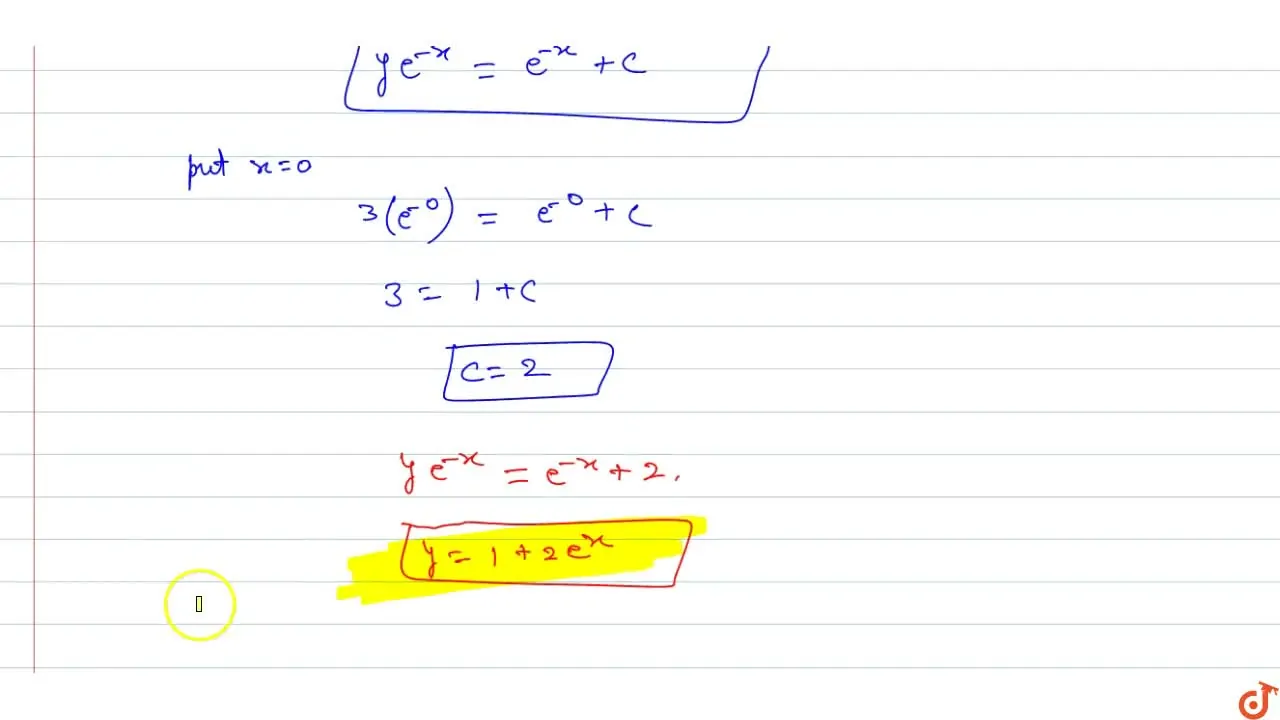 ye⁻ˣ = e⁻ˣ + c
put x=0
3(e⁻⁰) = e⁻⁰ + c
3 = 1 + c
c = 2
ye⁻ˣ = e⁻ˣ + 2.
y = 1 + 2eˣ